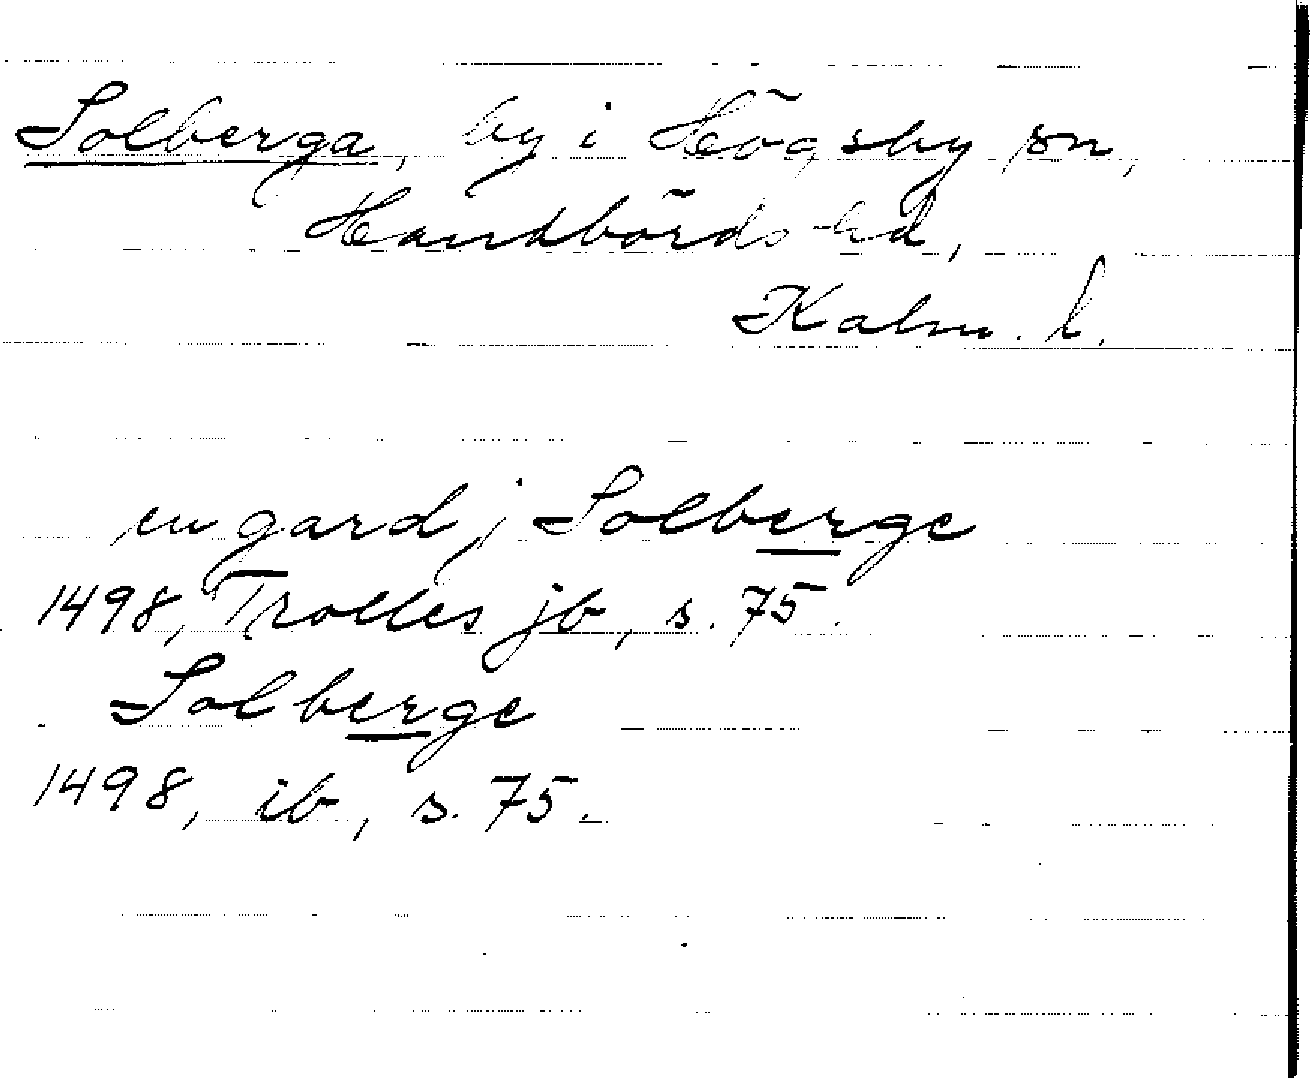 Solberga, by i Högsby sn,
Handbörds hd,
Kalm. l.
en gard j Solberge
1498, Trolles jb, s. 75.
Solberge
1498, ib, s. 75.